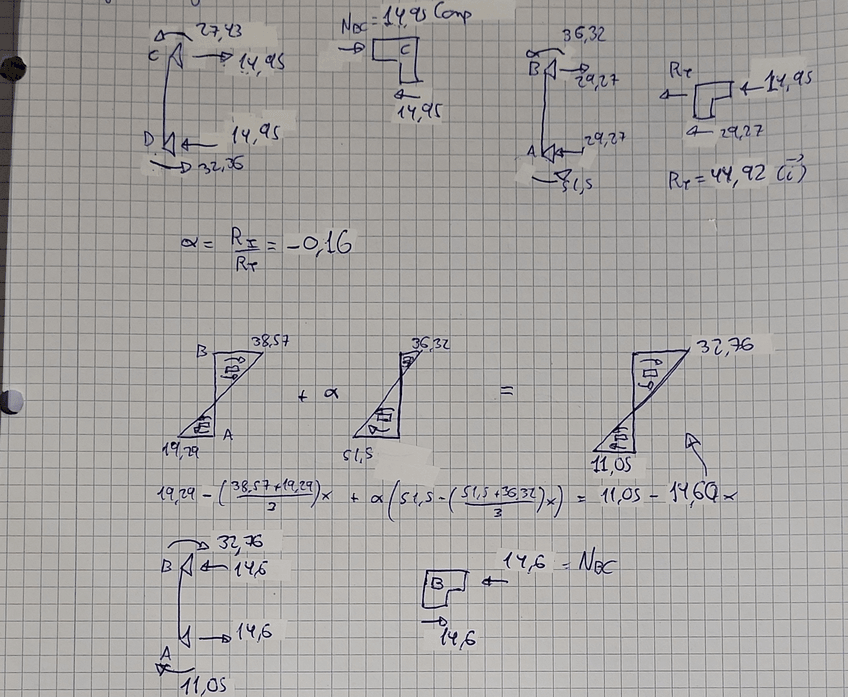 27,43
C
14,95
D
14,95
32,36
N_BC = 14,95 Comp
C
14,95
36,32
B
29,27
A
29,27
51,5
R_T
14,95
29,27
R_T = 44,92 (i⃗)
α = R_I / R_T = -0,16
B 38,57
19,29 A
+ α
36,32
51,5
=
32,76
11,05
19,29 - ((38,57+19,29)/3)x + α(51,5 - ((51,5+36,32)/3)x) = 11,05 - 14,60x
32,76
B 14,6
14,6
A
11,05
B 14,6 = N_BC
14,6